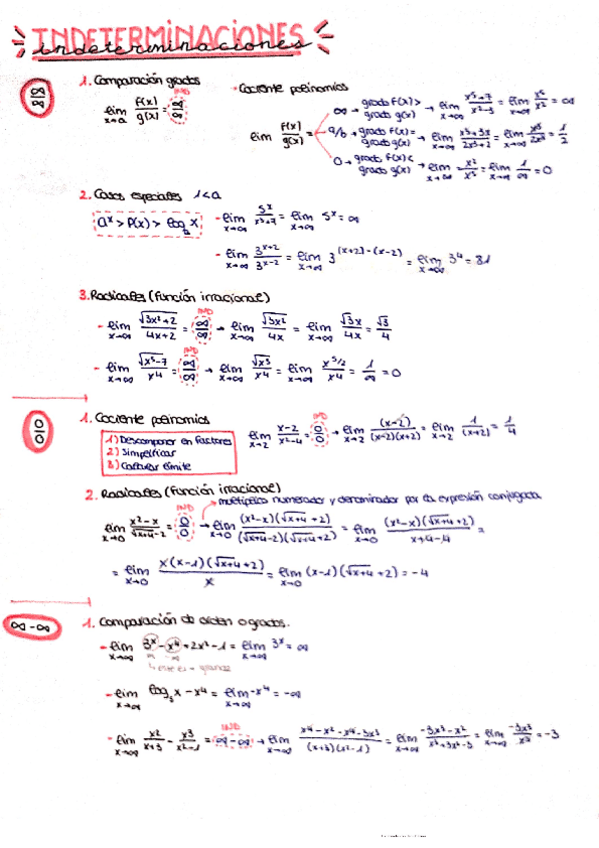 INDETERMINACIONES
indeterminaciones
∞/∞
1. Comparación grados
lim x→a f(x)/g(x) = ∞/∞ IND
- Cociente polinomios
lim f(x)/g(x)
∞ → grado f(x) > grado g(x) → lim x→∞ (x⁵+7)/(x²-3) = lim x→∞ x⁵/x² = ∞
a/b → grado f(x) = grado g(x) → lim x→∞ (x⁵+3x)/(2x⁵+2) = lim x→∞ x⁵/2x⁵ = 1/2
0 → grado f(x) < grado g(x) → lim x→∞ x²/x⁵ = lim x→∞ 1/∞ = 0
2. Casos especiales 1<a
aˣ > P(x) > logₐ x
- lim x→∞ 5ˣ/(x³+7) = lim x→∞ 5ˣ = ∞
- lim x→∞ 3ˣ⁺²/3ˣ⁻² = lim x→∞ 3^((x+2)-(x-2)) = lim x→∞ 3⁴ = 81
3. Radicales (función irracional)
- lim x→∞ √(3x²+2)/(4x+2) = ∞/∞ IND → lim x→∞ √(3x²)/4x = lim x→∞ √3x/4x = √3/4
- lim x→∞ √(x⁵-7)/x⁴ = ∞/∞ IND → lim x→∞ √(x⁵)/x⁴ = lim x→∞ x^(5/2)/x⁴ = 1/∞ = 0
0/0
1. Cociente polinomios
1) Descomponer en factores
2) Simplificar
3) Calcular límite
lim x→2 (x-2)/(x²-4) = 0/0 IND → lim x→2 (x-2)/((x-2)(x+2)) = lim x→2 1/(x+2) = 1/4
2. Radicales (función irracional)
multiplico numerador y denominador por la expresión conjugada
lim x→0 (x²-x)/(√(x+4)-2) = 0/0 IND → lim x→0 ((x²-x)(√(x+4)+2))/((√(x+4)-2)(√(x+4)+2)) = lim x→0 ((x²-x)(√(x+4)+2))/(x+4-4) =
= lim x→0 (x(x-1)(√(x+4)+2))/x = lim x→0 (x-1)(√(x+4)+2) = -4
∞-∞
1. Comparación de orden o grados.
- lim x→∞ 3ˣ-x⁴+2x²-1 = lim x→∞ 3ˣ = ∞
∞ -∞
- lim x→∞ log₅ x - x⁴ = lim x→∞ -x⁴ = -∞
- lim x→∞ x²/(x+3) - x³/(x²-1) = ∞-∞ IND → lim x→∞ (x⁴-x²-x⁴-3x³)/((x+3)(x²-1)) = lim x→∞ (-3x³-x²)/(x³+3x²-3) = lim x→∞ -3x³/x³ = -3